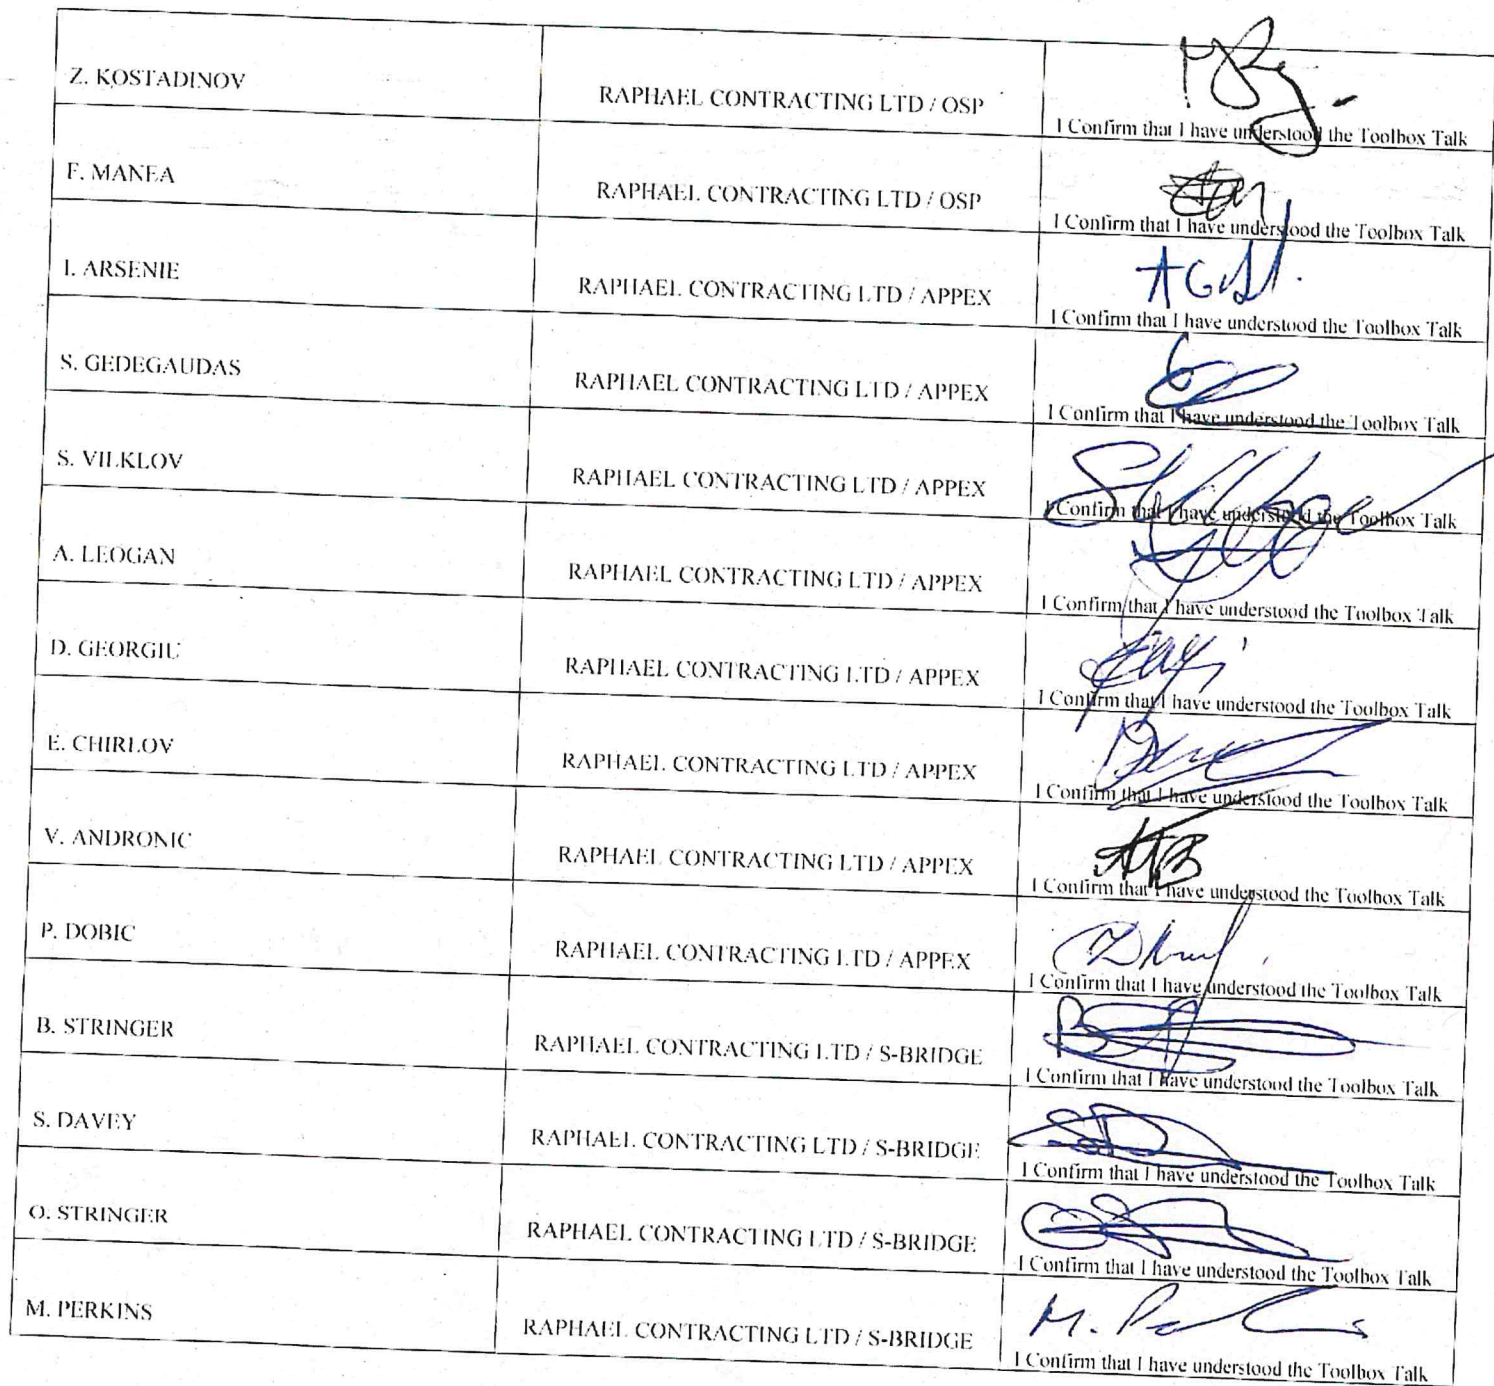 Z. KOSTADINOV
RAPHAEL CONTRACTING LTD / OSP
I Confirm that I have understood the Toolbox Talk
F. MANEA
RAPHAEL CONTRACTING LTD / OSP
I Confirm that I have understood the Toolbox Talk
I. ARSENIE
RAPHAEL CONTRACTING LTD / APPEX
I Confirm that I have understood the Toolbox Talk
S. GEDEGAUDAS
RAPHAEL CONTRACTING LTD / APPEX
I Confirm that I have understood the Toolbox Talk
S. VILKLOV
RAPHAEL CONTRACTING LTD / APPEX
I Confirm that I have understood the Toolbox Talk
A. LEOGAN
RAPHAEL CONTRACTING LTD / APPEX
I Confirm that I have understood the Toolbox Talk
D. GEORGIU
RAPHAEL CONTRACTING LTD / APPEX
I Confirm that I have understood the Toolbox Talk
E. CHIRLOV
RAPHAEL CONTRACTING LTD / APPEX
I Confirm that I have understood the Toolbox Talk
V. ANDRONIC
RAPHAEL CONTRACTING LTD / APPEX
I Confirm that I have understood the Toolbox Talk
P. DOBIC
RAPHAEL CONTRACTING LTD / APPEX
I Confirm that I have understood the Toolbox Talk
B. STRINGER
RAPHAEL CONTRACTING LTD / S-BRIDGE
I Confirm that I have understood the Toolbox Talk
S. DAVEY
RAPHAEL CONTRACTING LTD / S-BRIDGE
I Confirm that I have understood the Toolbox Talk
O. STRINGER
RAPHAEL CONTRACTING LTD / S-BRIDGE
I Confirm that I have understood the Toolbox Talk
M. PERKINS
RAPHAEL CONTRACTING LTD / S-BRIDGE
M.
I Confirm that I have understood the Toolbox Talk